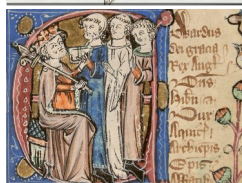 dwardus
dei gracia
Rex Angl
Dns
hibn
Dux
Aquit
Archiepis
Epis